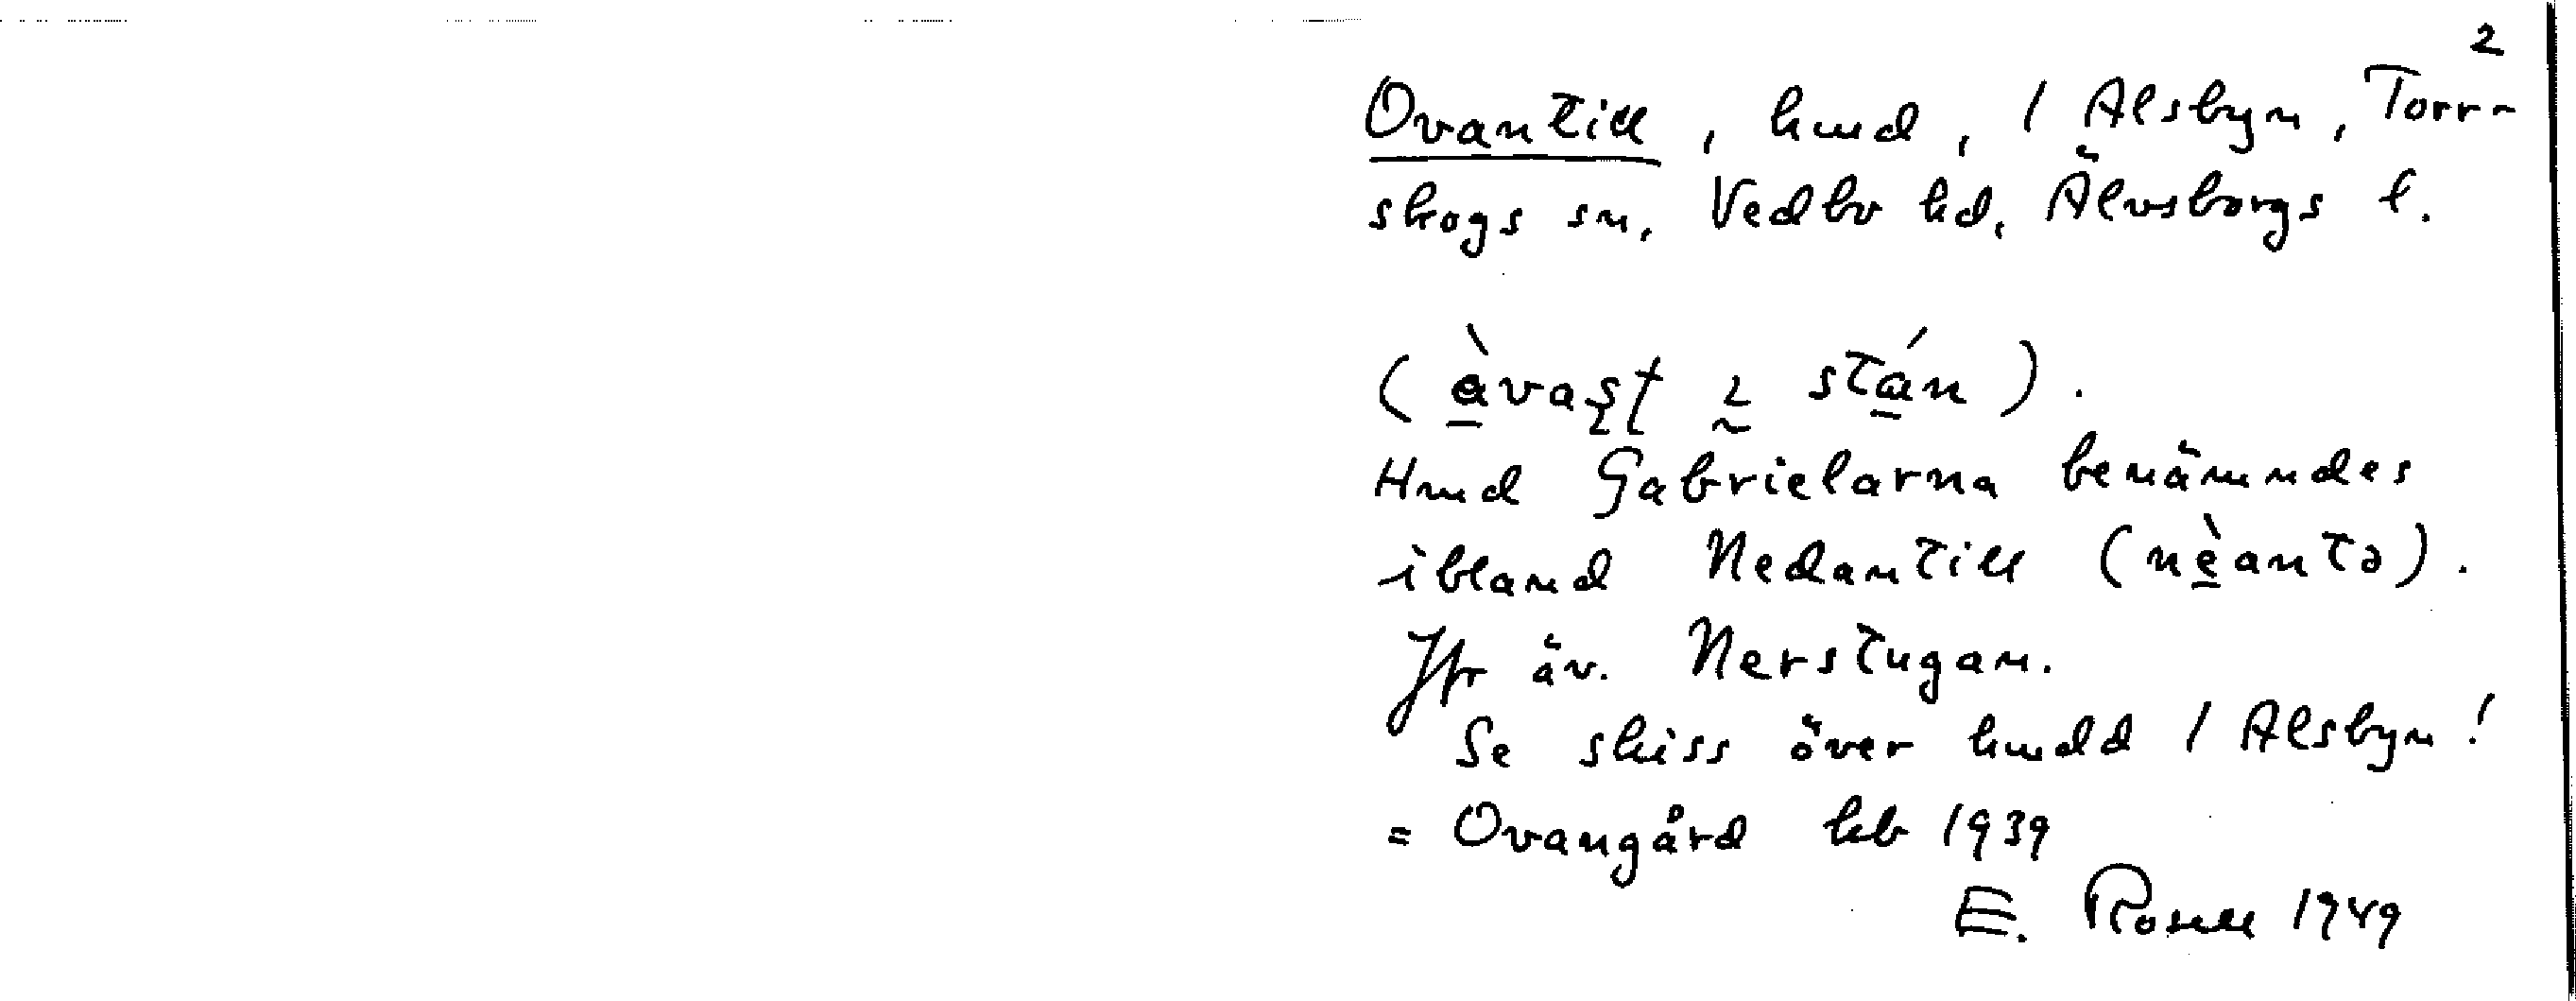 2
Ovantill, hmd, 1 Alsbyn, Torr-
skogs sn, Vedbo hd, Älvsborgs l.
(àvaʂʈ ḭ stán).
Hmd Gabrielarna benämndes
ibland Nedantill (nèantə).
Jfr äv. Nerstugan.
Se skiss över hmdd 1 Alsbyn!
= Ovangård kb 1939
E. Rosell 1949